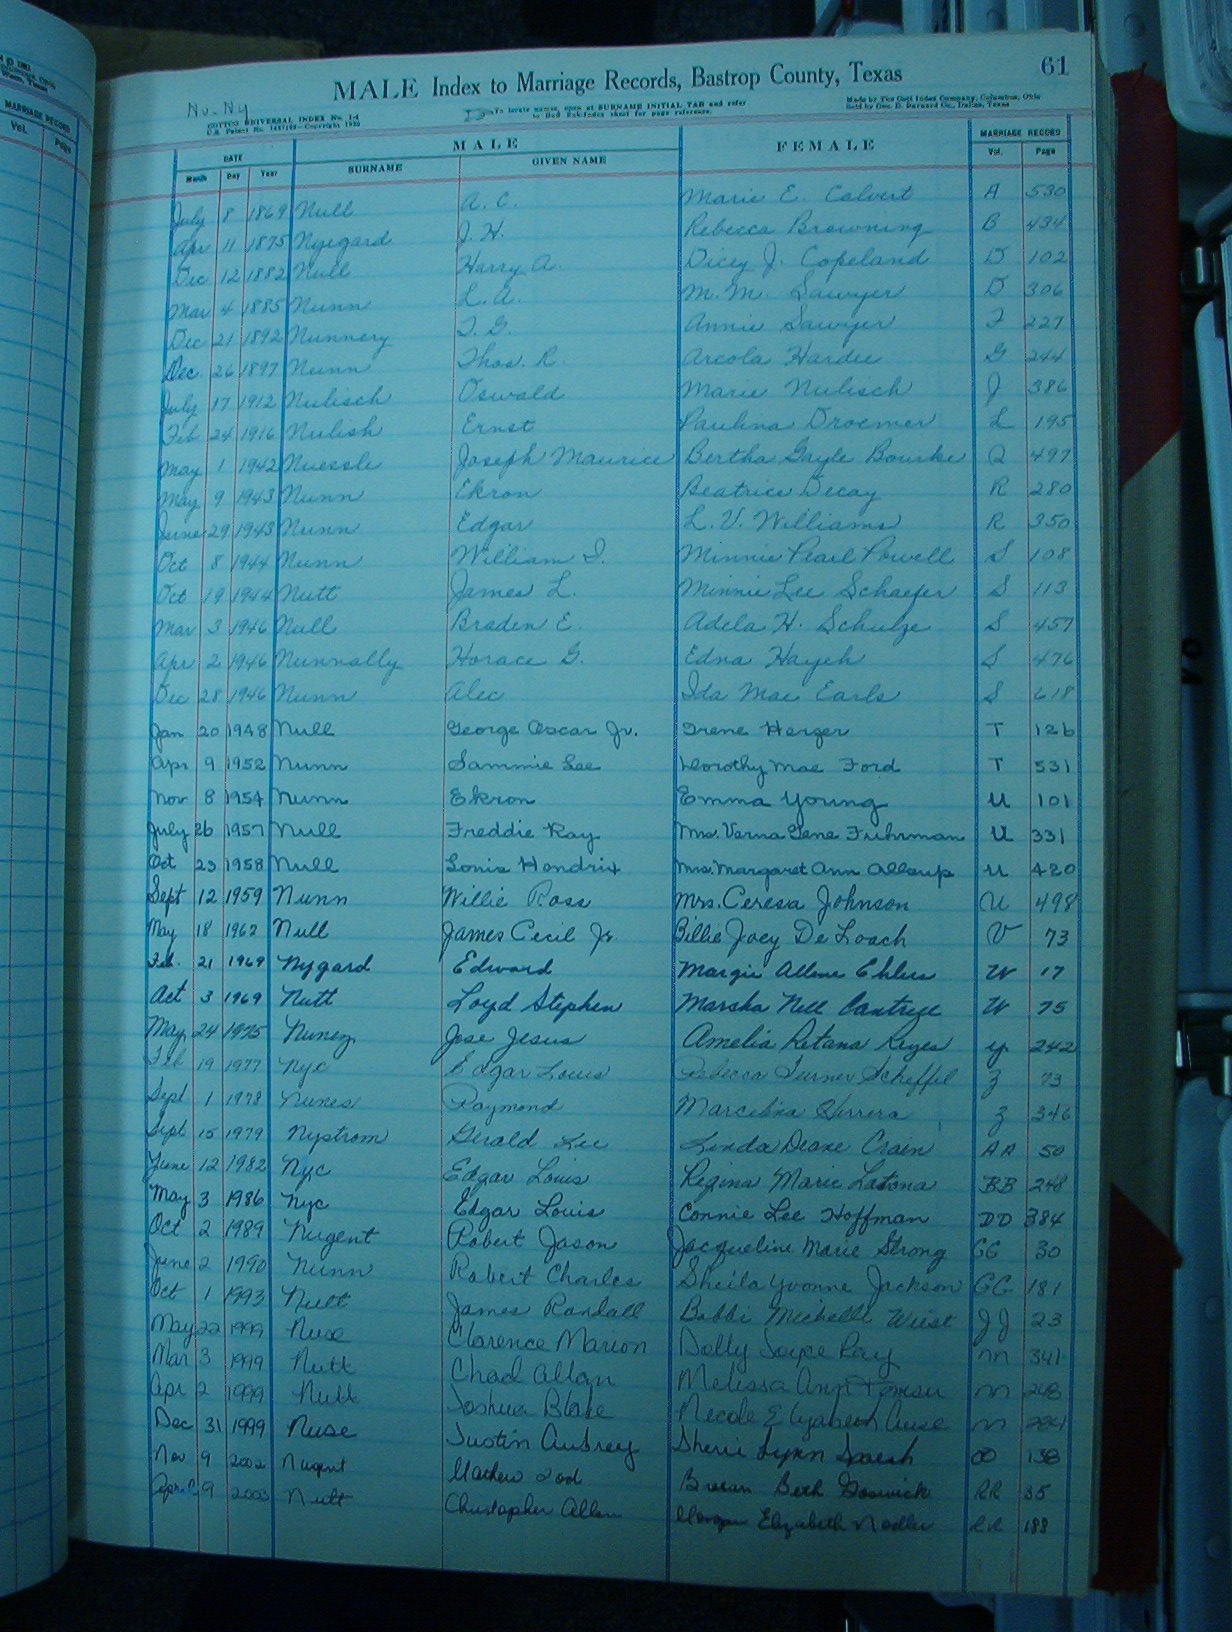 MARRIAGE RECORD
Vol. Page
61
MALE Index to Marriage Records, Bastrop County, Texas
Nu-Ny
COTTCO UNIVERSAL INDEX No. 1-4
To locate names, open at SURNAME INITIAL TAB and refer
to Red Sub-Index sheet for page reference.
Made by The Cott Index Company, Columbus, Ohio
Sold by Geo. D. Barnard Co., Dallas, Texas
DATE MALE FEMALE MARRIAGE RECORD
Month Day Year SURNAME GIVEN NAME Vol. Page
July 8 1869 Null A. C. Marie E. Calvert A 530
Apr 11 1875 Nyegard J. H. Rebecca Browning B 434
Dec 12 1882 Null Harry A. Dicey J. Copeland D 102
Mar 4 1885 Nunn L. A. M. M. Sawyer D 306
Dec 21 1892 Nunnery T. G. Annie Sawyer F 227
Dec. 26 1897 Nunn Thos. R. Arcola Hardee G 244
July 17 1912 Nulisch Oswald Marie Nulisch J 386
Feb 24 1916 Nulish Ernst Paulina Droemer L 195
May 1 1942 Nuessle Joseph Maurice Bertha Gayle Bourke Q 497
May 9 1943 Nunn Ekron Beatrice Decay R 280
June 29 1943 Nunn Edgar L. V. Williams R 350
Oct 8 1944 Nunn William I. Minnie Pearl Powell S 108
Oct 19 1944 Nutt James L. Minnie Lee Schaefer S 113
Mar 3 1946 Null Braden E. Adela H. Schulze S 457
Apr 2 1946 Nunnally Horace G. Edna Hayeh S 476
Dec 28 1946 Nunn Alec Ida Mae Earls S 618
Jan 20 1948 Null George Oscar Jr. Irene Herzer T 126
Apr 9 1952 Nunn Sammie Lee Dorothy Mae Ford T 531
Nov 8 1954 Nunn Ekron Emma Young U 101
July 26 1957 Null Freddie Ray Mrs. Verna Gene Fuhrman U 331
Oct 23 1958 Null Louis Hendrix Mrs. Margaret Ann Allsup U 420
Sept 12 1959 Nunn Willie Ross Mrs. Ceresa Johnson U 498
May 18 1962 Null James Cecil Jr Billie Joey De Loach V 73
Feb. 21 1969 Nygard Edward Margie Allene Ehlers W 17
Oct 3 1969 Nutt Loyd Stephen Marsha Nell W 75
May 24 1975 Nunez Jose Jesus Amelia Retana Reyes Y 242
Feb 19 1977 Nyc Edgar Louis Rebecca Turner Scheffel Z 73
Sept 1 1978 Nunes Raymond Marcelina Herrera Z 346
Sept 15 1979 Nystrom Gerald Lee Linda Deane Crain AA 50
June 12 1982 Nyc Edgar Louis Regina Marie Latona BB 248
May 3 1986 Nyc Edgar Louis Connie Lee Hoffman DD 384
Oct 2 1989 Nugent Robert Jason Jacqueline Marie Strong GG 30
June 2 1990 Nunn Robert Charles Sheila Yvonne Jackson GG 181
Oct 1 1993 Nutt James Randall Bobbi Michelle Wiest JJ 23
May 22 1999 Nuse Clarence Marion Dolly Ray M 341
Mar 3 1999 Nutt Chad Allan Melissa Ann M 248
Apr 2 1999 Nutt Joshua Blake Nicole Elizabeth M 284
Dec 31 1999 Nuse Justin Aubrey Sherie Lynn OO 138
Nov 9 2002 Nugent Mathew Tod Beth RR 35
9 2003 Nutt Christopher Allen Elizabeth RR 188